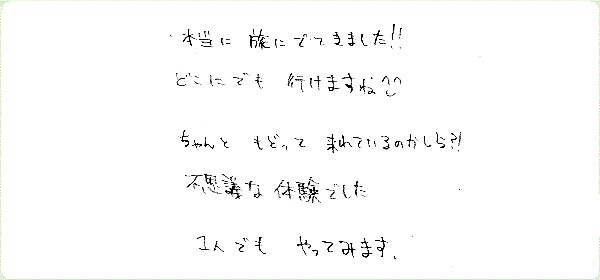 本当に 旅にでてきました!!
どこにでも 行けますね^^
ちゃんと もどって 来れているのかしら?!
不思議な 体験でした
1人でも やってみます.